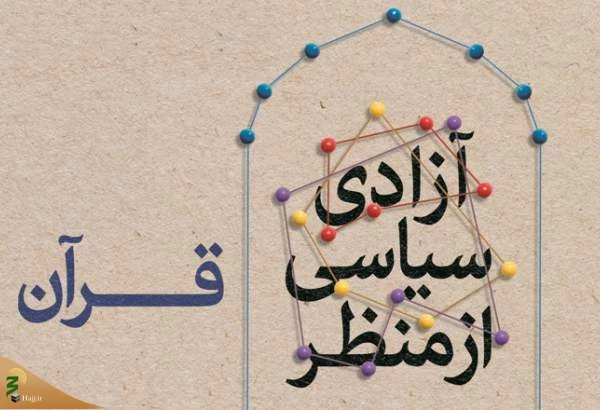 آزادی
سیاسی
از منظر
قرآن
Hajj.ir